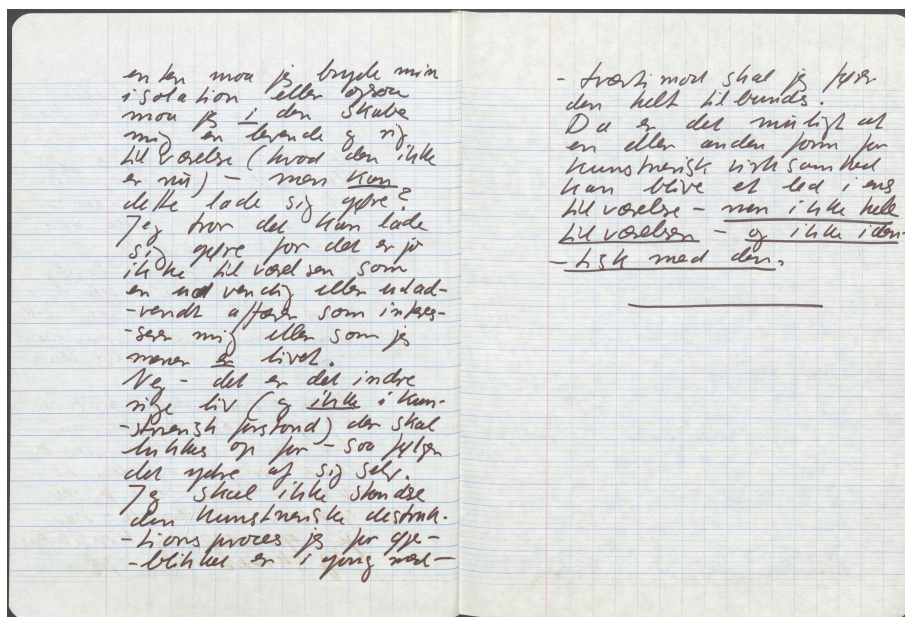 enten maa jeg bryde min
isolation eller ogsaa
maa jeg i den skabe
mig en levende og rig
tilværelse (hvad den ikke
er nu) - men kan
dette lade sig gøre?
Jeg tror det kan lade
sig gøre for det er jo
ikke tilværelsen som
en udvendig eller udad-
-vendt affære som interes-
-serer mig eller som jeg
mener er livet.
Nej - det er det indre
rige liv (og ikke i kun-
-stnerisk forstand) der skal
lukkes op for - saa følger
det ydre af sig selv.
Jeg skal ikke standse
den kunstneriske destruk-
-tionsproces jeg for øje-
-blikket er i gang med -
- tværtimod skal jeg følge
den helt tilbunds.
Da er det muligt at
en eller anden form for
kunstnerisk virksomhed
kan blive et led i ens
tilværelse - men ikke hele
tilværelsen - og ikke iden-
-tisk med den.